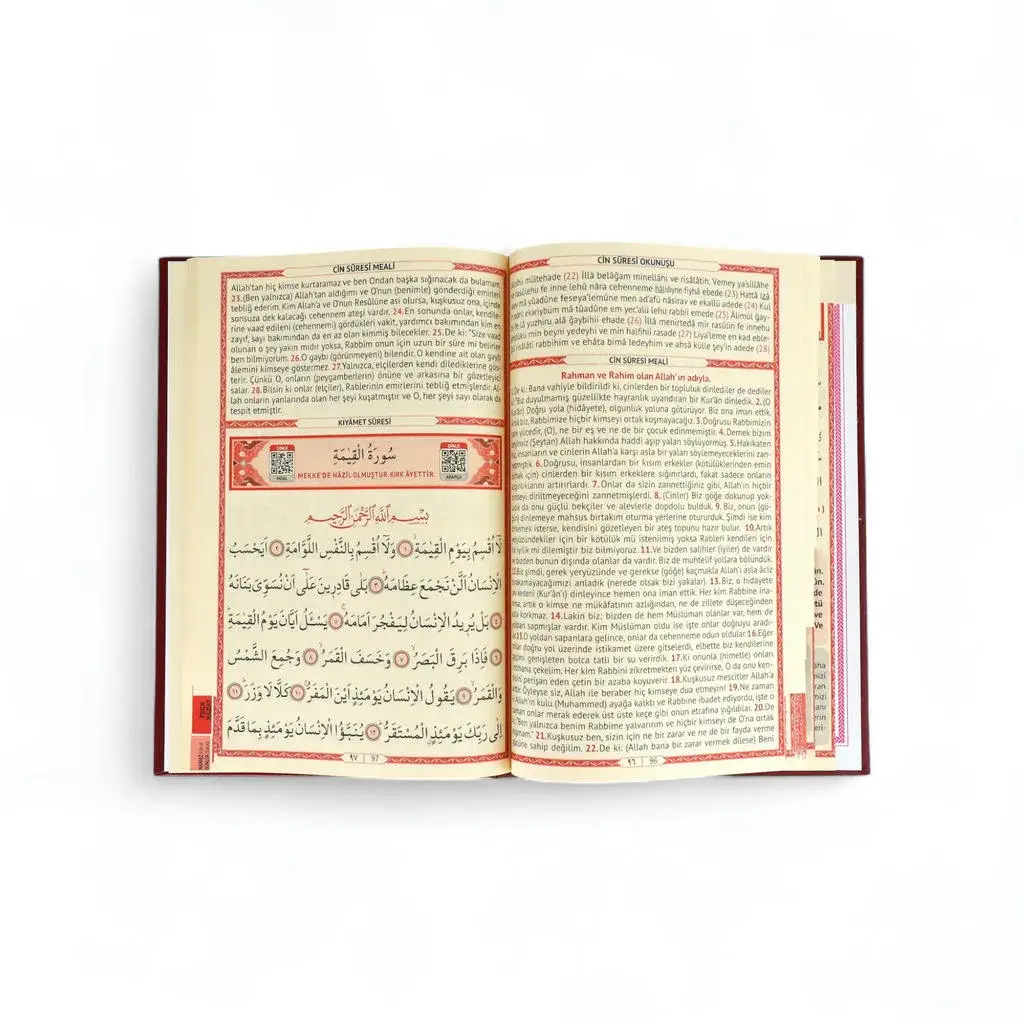 CİN SÛRESİ OKUNUŞU
mültehade (22) İllâ belâğam minellâhi ve risâlâtih. Vemey ya'sillâhe
rasûlehu fe inne lehû nâra cehenneme hâlidiyne fiyhâ ebede (23) Hattâ izâ
mâ yûadûne feseya'lemûne men ad'afü nâsırav ve ekallü adede (24) Kul
ekariybüm mâ tûadûne em yec'alü lehu rabbiî emede. (25) Âlimül ğay-
fe lâ yuzhiru alâ ğaybihiî ehade (26) İllâ menirtedâ mir rasûlin fe innehu
min beyni yedeyhi ve min halfihiî rasade (27) Liya'leme en kad eble-
risâlâti rabbihim ve ehâta bimâ ledeyhim ve ahsâ külle şey'in adede (28)
CİN SÛRESİ MEALİ
Rahman ve Rahim olan Allah'ın adıyla.
De ki: Bana vahiyle bildirildi ki, cinlerden bir topluluk dinlediler de dediler
"Biz duyulmamış güzellikte hayranlık uyandıran bir Kur'ân dinledik. 2.(O
Doğru yola (hidâyete), olgunluk yoluna götürüyor. Biz ona iman ettik.
biz, Rabbimize hiçbir kimseyi ortak koşmayacağız. 3.Doğrusu Rabbimizin
yücedir, (O), ne bir eş ve ne de bir çocuk edinmemiştir. 4.Demek bizim
(Şeytan) Allah hakkında haddi aşıp yalan söylüyormuş. 5.Hakikaten
insanların ve cinlerin Allah'a karşı asla bir yalan söylemeyeceklerini zan-
6.Doğrusu, insanlardan bir kısım erkekler (kötülüklerinden emin
için) cinlerden bir kısım erkeklere sığınırlardı, fakat sadece onların
artırırlardı. 7.Onlar da sizin zannettiğiniz gibi, Allah'ın hiçbir
diriltmeyeceğini zannetmişlerdi. 8. (Cinler) Biz göğe dokunup yok-
da onu güçlü bekçiler ve alevlerle dopdolu bulduk. 9.Biz, onun (gö-
dinlemeye mahsus birtakım oturma yerlerine otururduk. Şimdi ise kim
isterse, kendisini gözetleyen bir ateş topunu hazır bulur. 10.Artık
için bir kötülük mü istenilmiş yoksa Rableri kendileri için
iyilik mi dilemiştir biz bilmiyoruz. 11.Ve bizden salihler (iyiler) de vardır
bizden bunun dışında olanlar da vardır. Biz de muhtelif yollara bölündük.
12.Biz şimdi; gerek yeryüzünde ve gerekse (göğe) kaçmakla Allah'ı asla âciz
anladık (nerede olsak bizi yakalar). 13.Biz, o hidayete
(Kur'ân'ı) dinleyince hemen ona iman ettik. Her kim Rabbine ina-
artık o kimse ne mükâfatının azlığından, ne de zillete düşeceğinden
korkmaz. 14.Lakin biz; bizden de hem Müslüman olanlar var, hem de
sapmışlar vardır. Kim Müslüman oldu ise işte onlar doğruyu aradı-
15.O yoldan sapanlara gelince, onlar da cehenneme odun oldular. 16.Eğer
doğru yol üzerinde istikamet üzere gitselerdi, elbette biz kendilerine
genişleten bolca tatlı bir su verirdik. 17.Ki onunla (nimetle) onları
çekelim. Her kim Rabbini zikretmekten yüz çevirirse, O da onu ken-
perişan eden çetin bir azaba koyuverir. 18.Kuşkusuz mescitler Allah'a
Öyleyse siz, Allah ile beraber hiç kimseye dua etmeyin! 19.Ne zaman
Allah'ın kulu (Muhammed) ayağa kalktı ve Rabbine ibadet ediyordu, işte o
onlar merak ederek üst üste keçe gibi onun etrafına yığıldılar. 20.De
"Ben yalnızca benim Rabbime yalvarırım ve hiçbir kimseyi de O'na ortak
21.Kuşkusuz ben, sizin için ne bir zarar ve ne de bir fayda verme
sahip değilim. 22.De ki: (Allah bana bir zarar vermek dilese) Beni
٩٦ 96
CİN SÛRESİ MEALİ
Allah'tan hiç kimse kurtaramaz ve ben Ondan başka sığınacak da bulamam.
23.(Ben yalnızca) Allah'tan aldığımı ve O'nun (benimle) gönderdiği emirleri
tebliğ ederim. Kim Allah'a ve O'nun Resûlüne asi olursa, kuşkusuz ona, içinde
sonsuza dek kalacağı cehennem ateşi vardır. 24.En sonunda onlar, kendile-
rine vaad edileni (cehennemi) gördükleri vakit, yardımcı bakımından kim en
zayıf, sayı bakımından da en az olan kimmiş bilecekler. 25.De ki: "Size vaad
olunan o şey yakın mıdır yoksa, Rabbim onun için uzun bir süre mi belirler
ben bilmiyorum. 26.O gaybı (görünmeyeni) bilendir. O kendine ait olan gayb
âlemini kimseye göstermez. 27.Yalnızca, elçilerden kendi dilediklerine göste-
rir. Çünkü O, onların (peygamberlerin) önüne ve arkasına bir gözetleyici
salar. 28.Bilsin ki onlar (elçiler), Rablerinin emirlerini tebliğ etmişlerdir. Al-
lah onların yanlarında olan her şeyi kuşatmıştır ve O, her şeyi sayı olarak da
tespit etmiştir.
KIYÂMET SÛRESİ
DİNLE
MEAL
سُورَةُ الْقِيٰمَةِ
MEKKE'DE NÂZİL OLMUŞTUR. KIRK ÂYETTİR.
DİNLE
ARAPÇA
بِسْمِ اللّٰهِ الرَّحْمٰنِ الرَّحِيمِ
لَٓا اُقْسِمُ بِيَوْمِ الْقِيٰمَةِۙ ﴿١﴾ وَلَٓا اُقْسِمُ بِالنَّفْسِ اللَّوَّامَةِ ﴿٢﴾ اَيَحْسَبُ
الْاِنْسَانُ اَلَّنْ نَجْمَعَ عِظَامَهُۜ ﴿٣﴾ بَلٰى قَادِرِينَ عَلٰٓى اَنْ نُسَوِّيَ بَنَانَهُ
﴿٤﴾ بَلْ يُرِيدُ الْاِنْسَانُ لِيَفْجُرَ اَمَامَهُۚ ﴿٥﴾ يَسْـَٔلُ اَيَّانَ يَوْمُ الْقِيٰمَةِۜ
﴿٦﴾ فَاِذَا بَرِقَ الْبَصَرُۙ ﴿٧﴾ وَخَسَفَ الْقَمَرُۙ ﴿٨﴾ وَجُمِعَ الشَّمْسُ
وَالْقَمَرُۙ ﴿٩﴾ يَقُولُ الْاِنْسَانُ يَوْمَئِذٍ اَيْنَ الْمَفَرُّۚ ﴿١٠﴾ كَلَّا لَا وَزَرَۜ ﴿١١﴾
اِلٰى رَبِّكَ يَوْمَئِذٍ الْمُسْتَقَرُّۜ ﴿١٢﴾ يُنَبَّؤُا الْاِنْسَانُ يَوْمَئِذٍ بِمَا قَدَّمَ
٩٧ 97